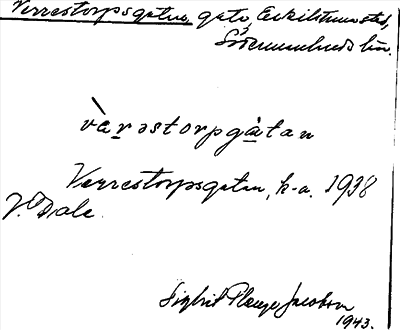 Verrestorpsgatan, gata, Eskilstuna stad,
Södermanlands län.
vàrəstorpgàtan
Verrestorpsgatan, k-a. 1938
V. Dala
Sigbrit Plænge Jacobson
1943.